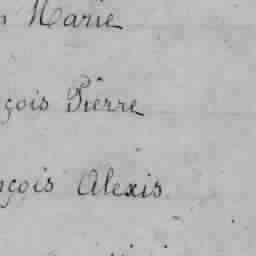 Marie
çois Pierre
nçois Alexis